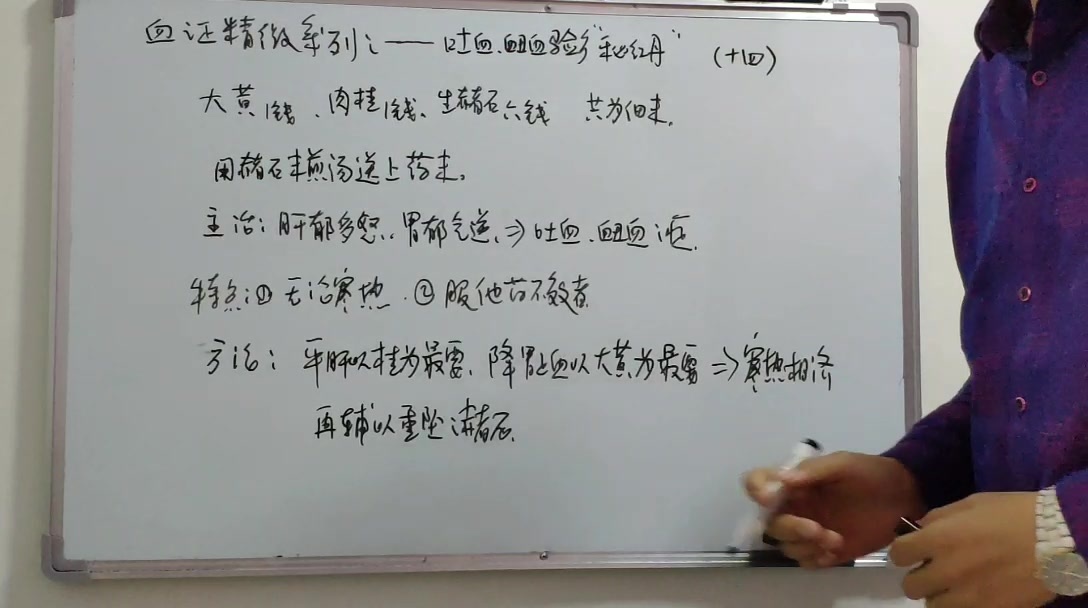 血证精微系列之——吐血、衄血验方“秘红丹” (十四)
大黄1钱、肉桂1钱、生赭石六钱 共为细末。
用赭石末煎汤送上药末。
主治:肝郁多怒、胃郁气逆、⇒吐血、衄血证。
特点:① 无论寒热.② 服他药不效者
方论: 平肝以桂为最要、降胃止血以大黄为最要⇒寒热相济
再辅以重坠之赭石。